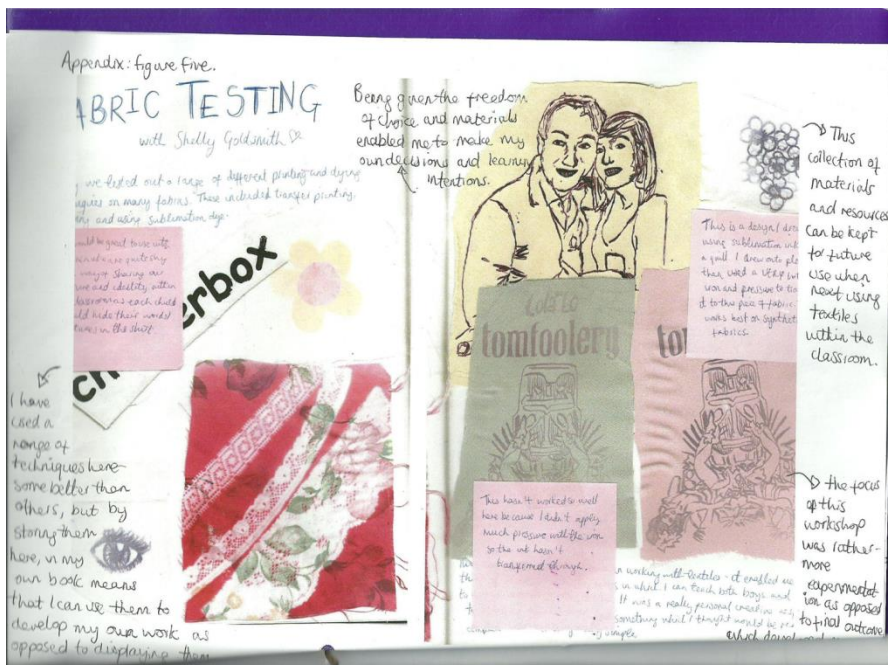 Appendix: figure five.
ABRIC TESTING
with Shelly Goldsmith
we tested out a range of different printing and dying
on many fabrics. These included transfer printing,
and using sublimation dye.
would be great to use with
sharing our
and identity within
classrooms each child
could hide their words/
in the
ch
erbox
I have
used a
range of
techniques here
some better than
others, but by
storing them
here, in my
own book means
that I can use them to
develop my own work as
opposed to displaying them
Being given the freedom
of choice and materials
enabled me to make my
own decisions and learning
intentions.
tomfoolery
to
This is a design I drew
using sublimation ink
a quill. I drew onto
then used a very hot
iron and pressure to
it to the piece of fabric.
works best on synthetic
fabrics.
This hasn't worked so well
here because I didn't apply
much pressure with the iron
so the ink hasn't
transferred through.
working with textiles - it enabled me
in what I can teach both boys and
It was a really personal creative
something which I thought would be
simple
This
collection of
materials
and resources
can be kept
for future
use when
next using
textiles
within the
classroom.
the focus
of this
workshop
was rather
more
experimentat
ion as opposed
to final outcome
which developed